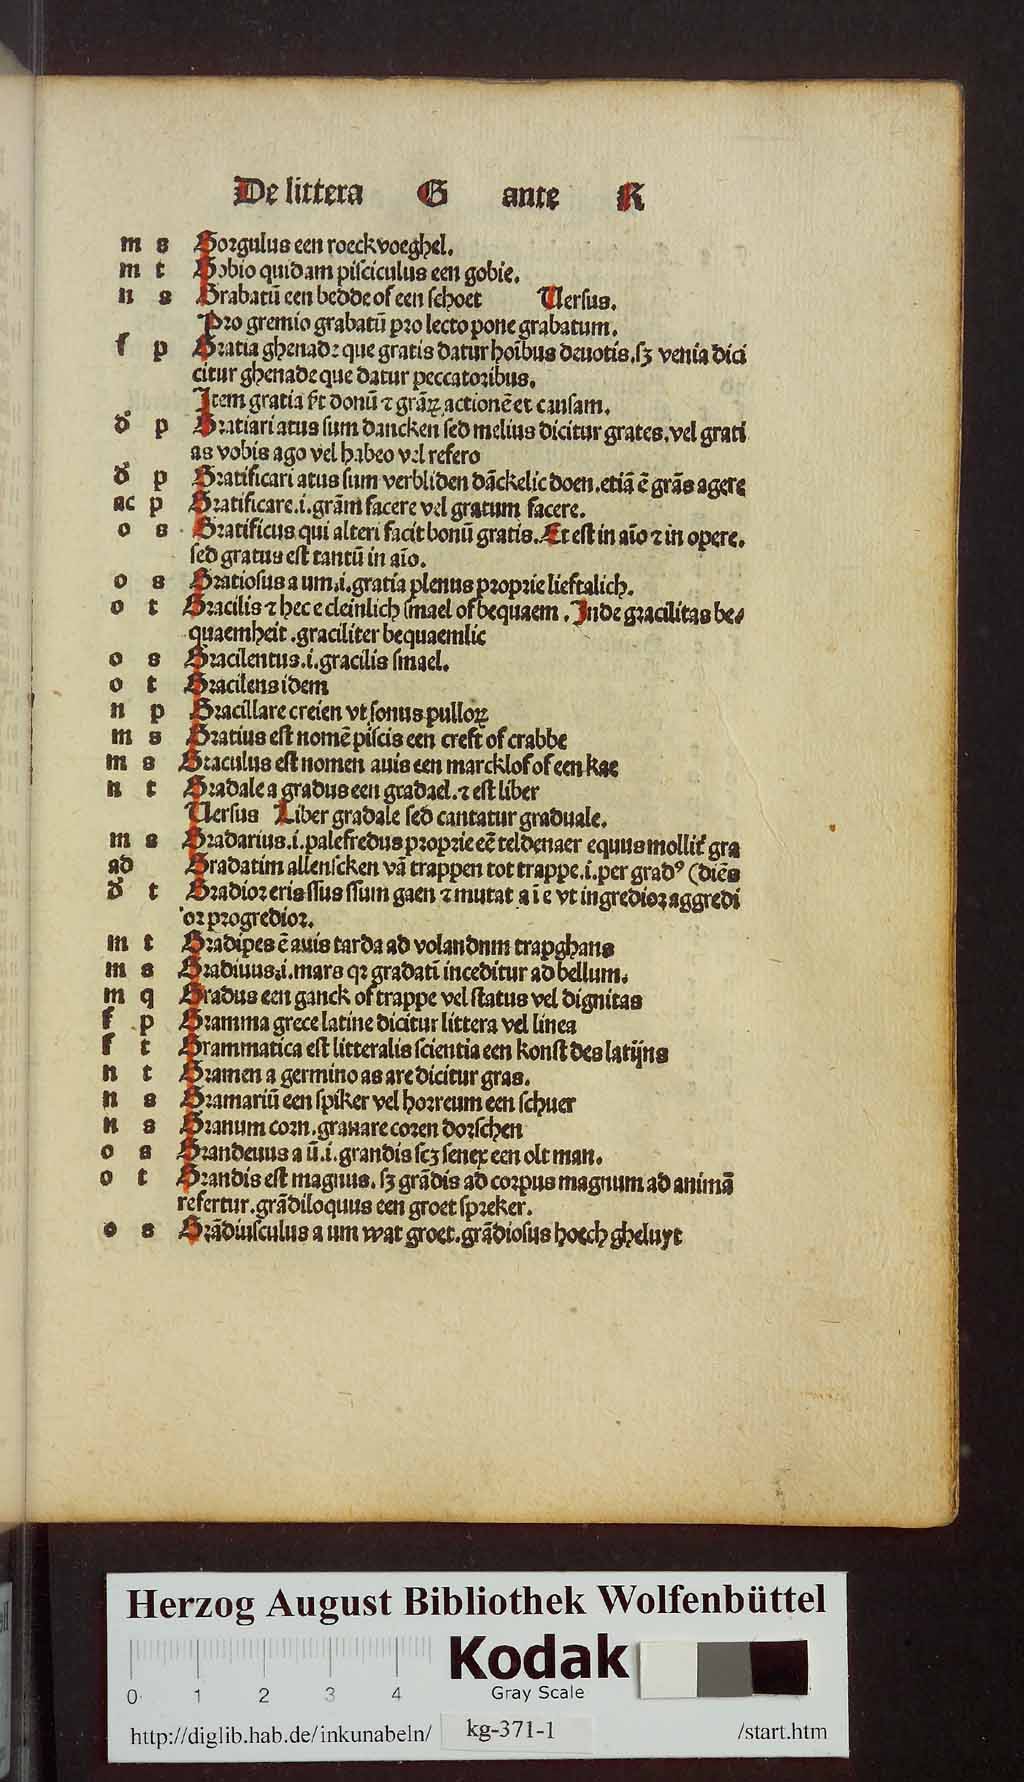 De littera G ante R
m s Gorgulus een roeckvoeghel.
m t Gobio quidam pisciculus een gobie.
n s Grabatū een bedde of een schoet Versus.
Pro gremio grabatū pro lecto pone grabatum.
f p Gratia ghenade que gratis datur hoībus deuotis.sꝫ venia dici
citur ghenade que datur peccatoribus.
Item gratia fit donū ⁊ grāꝝ actionē et causam.
đ p Gratiari atus sum dancken sed melius dicitur grates.vel grati
as vobis ago vel habeo vel refero
đ p Gratificari atus sum verbliden dāckelic doen.etiā ē grās agere
ac p Gratificare.i.grām facere vel gratum facere.
o s Gratificus qui alteri facit bonū gratis.Et est in aīo ⁊ in opere.
sed gratus est tantū in aīo.
o s Gratiosus a um.i.gratia plenus proprie lieftalich.
o t Gracilis ⁊ hec e cleinlich smael of bequaem.Inde gracilitas be⸗
quaemheit.graciliter bequaemlic
o s Gracilentus.i.gracilis smael.
o t Gracilens idem
n p Gracillare creien vt sonus pulloꝝ
m s Gratius est nomē piscis een creft of crabbe
m s Graculus est nomen auis een marcklof of een kae
n t Gradale a gradus een gradael.⁊ est liber
Versus Liber gradale sed cantatur graduale.
m s Gradarius.i.palefredus proprie eē teldenaer equus mollit᷑ gra
ad Gradatim allenscken vā trappen tot trappe.i.per gradꝰ (diēs
đ t Gradior eris ssus ssum gaen ⁊ mutat a i e vt ingredior aggredi
or progredior.
m t Gradipes ē auis tarda ad volandnm trapghans
m s Gradiuus.i.mars qꝛ gradatī inceditur ad bellum.
m q Gradus een ganck of trappe vel status vel dignitas
f p Gramma grece latine dicitur littera vel linea
f t Grammatica est litteralis scientia een konst des latijns
n t Gramen a germino as are dicitur gras.
n s Gramariū een spiker vel horreum een schuer
n s Granum corn.granare coren dorschen
o s Grandeuus a ū.i.grandis scꝫ senex een olt man.
o t Grandis est magnus.sꝫ grādis ad corpus magnum ad animā
refertur.grādiloquus een groet spreker.
o s Grādiusculus a um wat groet.grādiosus hoech gheluyt
Herzog August Bibliothek Wolfenbüttel
0 1 2 3 4
Kodak
Gray Scale
http://diglib.hab.de/inkunabeln/ kg-371-1 /start.htm